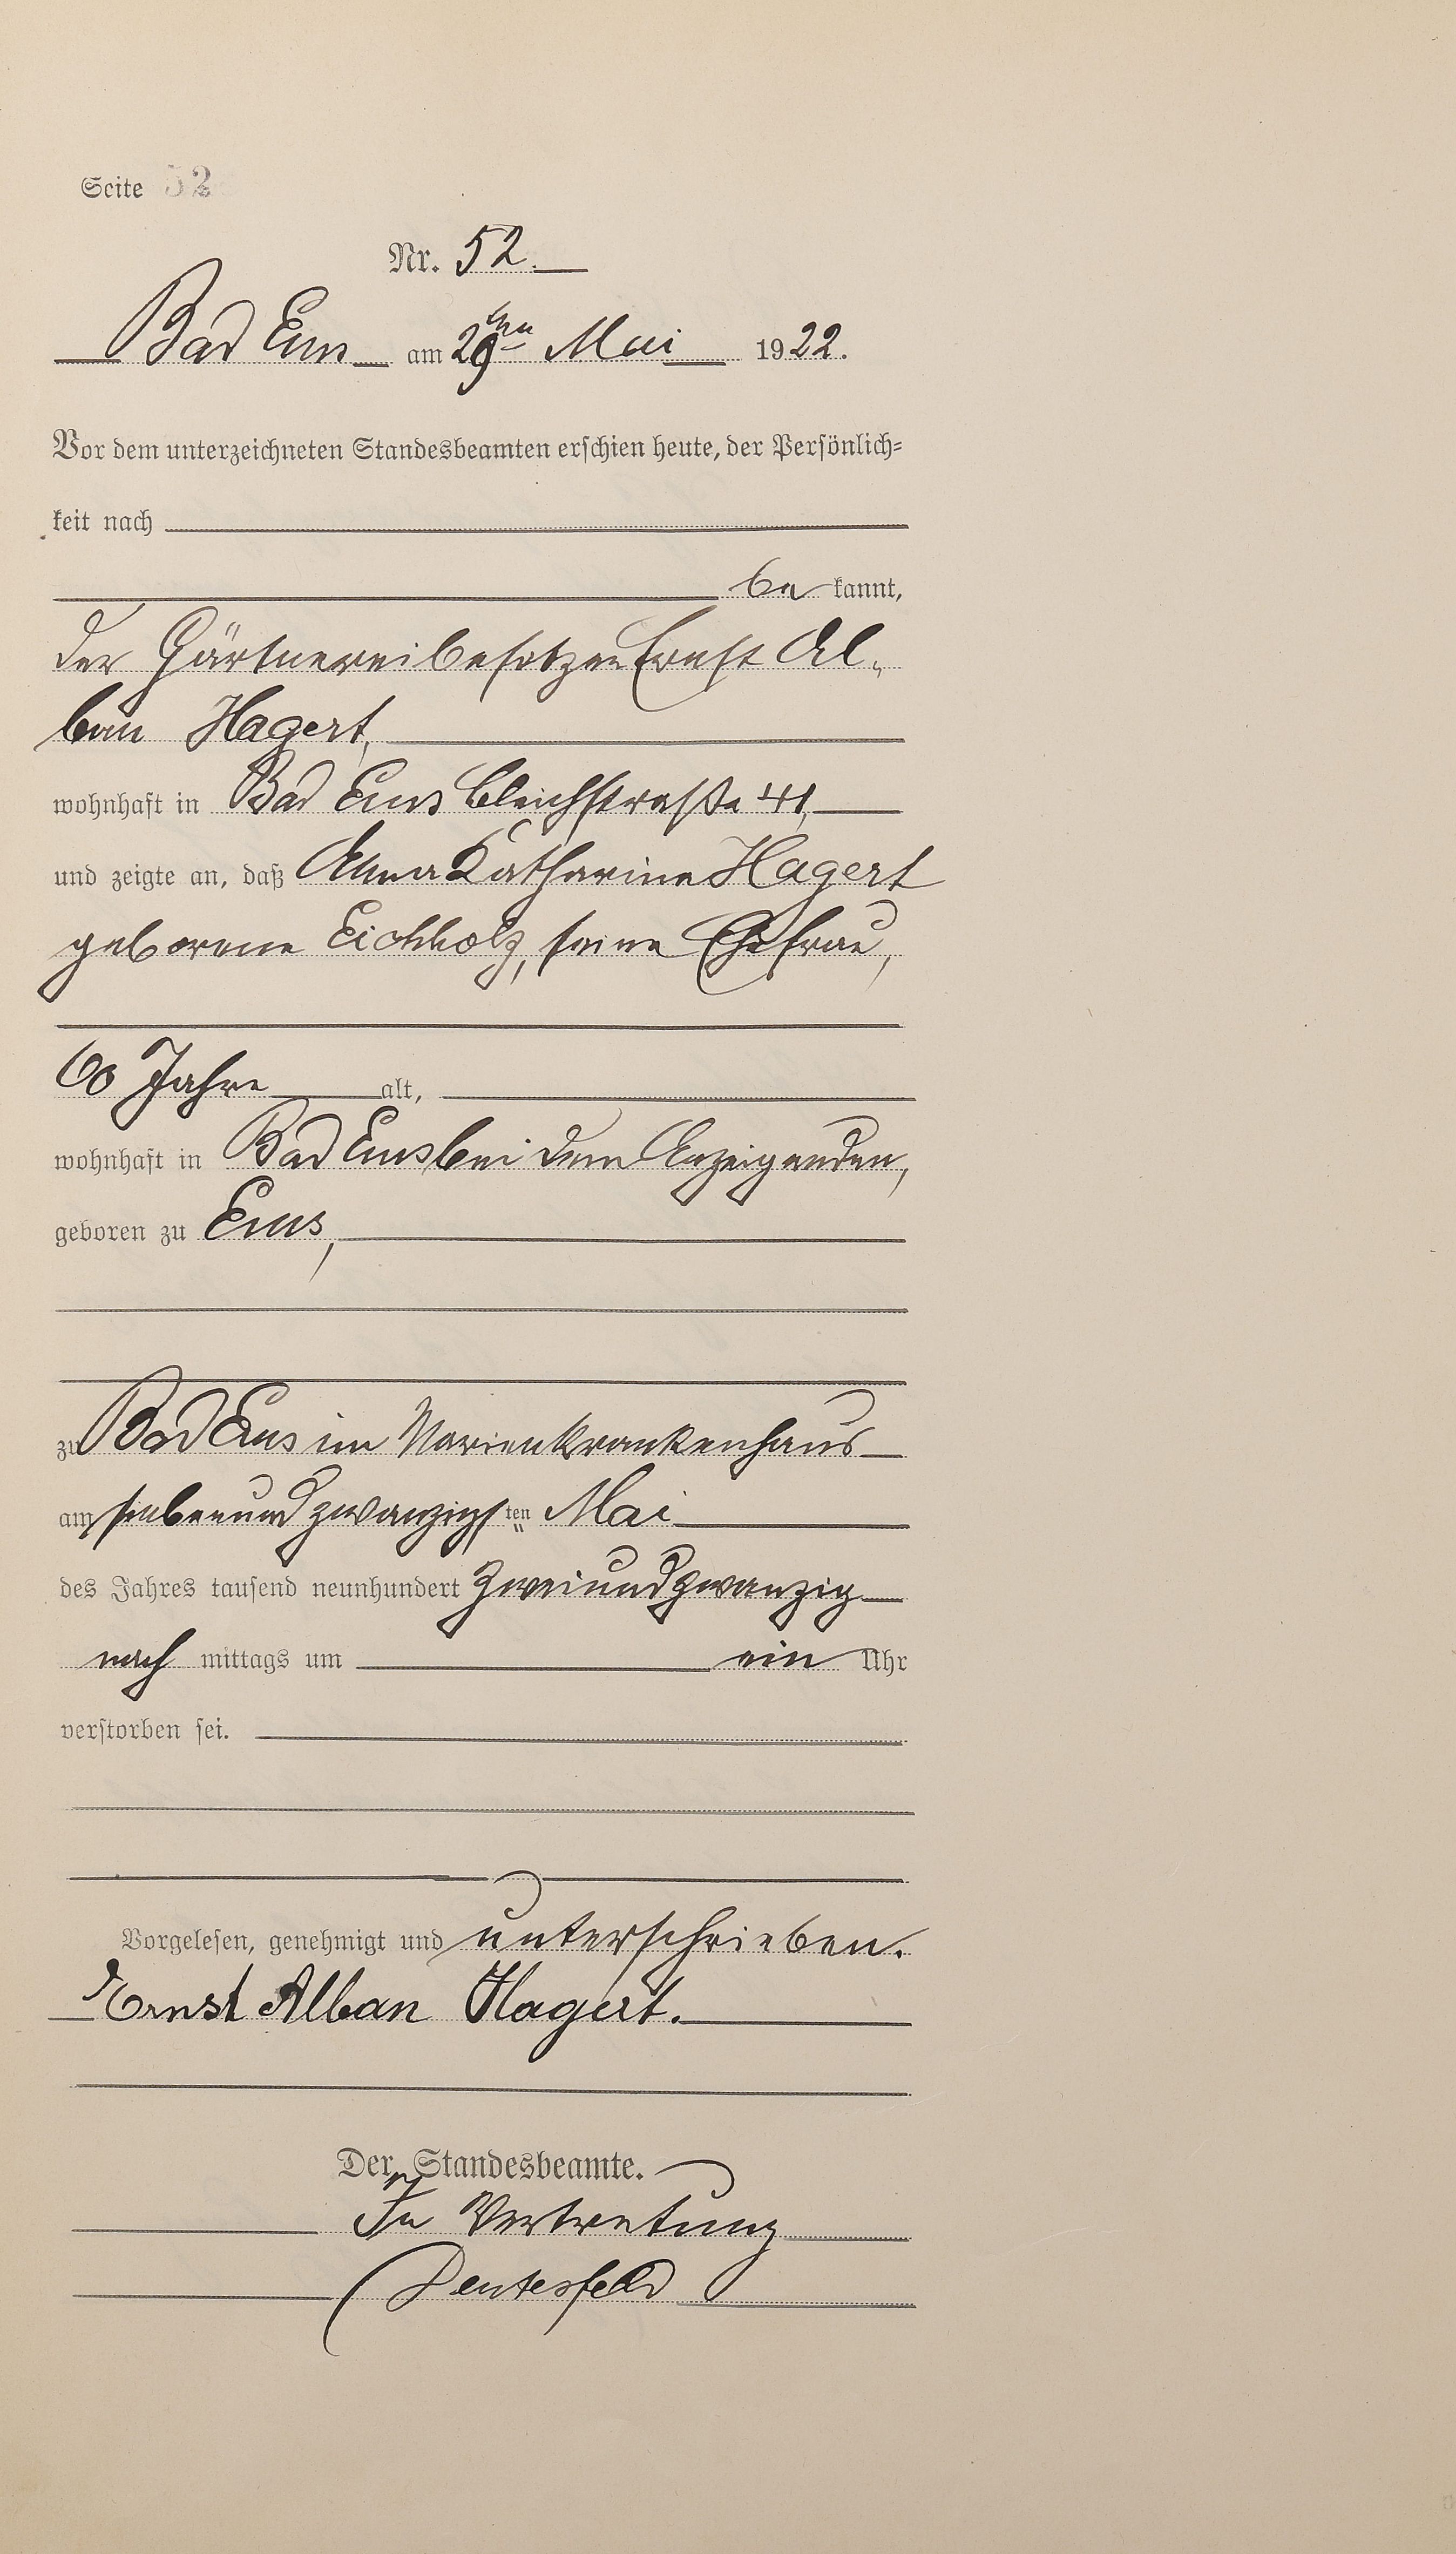 Seite 52
Nr. 52.
Bad Ems am 29ten Mai 1922.
Vor dem unterzeichneten Standesbeamten erschien heute, der Persönlich-
keit nach
be kannt,
der Gärtnereibesitzer Ernst Al-
ban Hagert,
wohnhaft in Bad Ems Bleichstraße 41,
und zeigte an, daß Anna Katharina Hagert
geborene Eichholz, seine Ehefrau,
60 Jahre alt,
wohnhaft in Bad Ems bei dem Anzeigenden,
geboren zu Ems,
zu Bad Ems im Marienkrankenhaus
am siebenundzwanzigsten Mai
des Jahres tausend neunhundert zweiundzwanzig
nach mittags um ein Uhr
verstorben sei.
Vorgelesen, genehmigt und unterschrieben.
Ernst Alban Hagert.
Der Standesbeamte.
In Vertretung